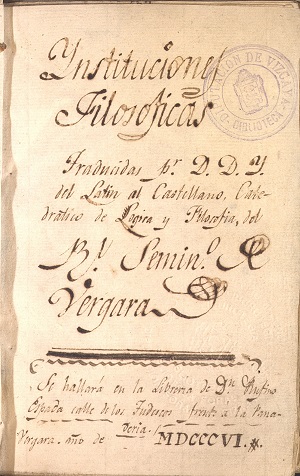 Ynstituciones
Filosoficas
Traducidas pr. D. D. Y.
del Latin al Castellano, Cate-
dratico de Logica y Filosofia, del
Rl. Seminº. de
Vergara
Se hallará en la Libreria de Dn. Rufino
Espada calle de los Judercos frente a la Pana-
deria.
Vergara. año de MDCCCVI.
BIBLIOTECA